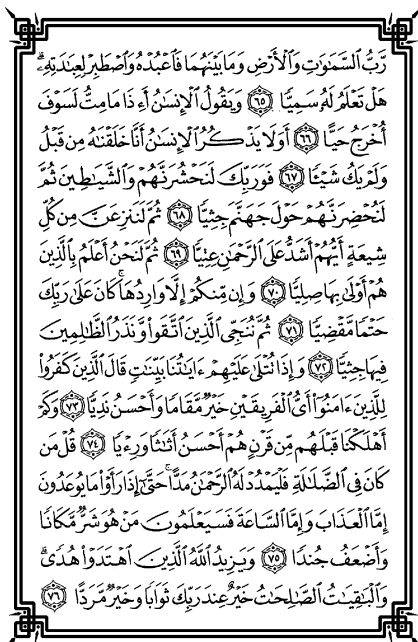 رَّبُّ السَّمَٰوَٰتِ وَالْأَرْضِ وَمَا بَيْنَهُمَا فَاعْبُدْهُ وَاصْطَبِرْ لِعِبَٰدَتِهِۦۚ
هَلْ تَعْلَمُ لَهُۥ سَمِيًّا ٦٥ وَيَقُولُ الْإِنسَٰنُ أَءِذَا مَا مِتُّ لَسَوْفَ
أُخْرَجُ حَيًّا ٦٦ أَوَلَا يَذْكُرُ الْإِنسَٰنُ أَنَّا خَلَقْنَٰهُ مِن قَبْلُ
وَلَمْ يَكُ شَيْـًٔا ٦٧ فَوَرَبِّكَ لَنَحْشُرَنَّهُمْ وَالشَّيَٰطِينَ ثُمَّ
لَنُحْضِرَنَّهُمْ حَوْلَ جَهَنَّمَ جِثِيًّا ٦٨ ثُمَّ لَنَنزِعَنَّ مِن كُلِّ
شِيعَةٍ أَيُّهُمْ أَشَدُّ عَلَى الرَّحْمَٰنِ عِتِيًّا ٦٩ ثُمَّ لَنَحْنُ أَعْلَمُ بِالَّذِينَ
هُمْ أَوْلَىٰ بِهَا صِلِيًّا ٧٠ وَإِن مِّنكُمْ إِلَّا وَارِدُهَاۚ كَانَ عَلَىٰ رَبِّكَ
حَتْمًا مَّقْضِيًّا ٧١ ثُمَّ نُنَجِّي الَّذِينَ اتَّقَوا وَّنَذَرُ الظَّٰلِمِينَ
فِيهَا جِثِيًّا ٧٢ وَإِذَا تُتْلَىٰ عَلَيْهِمْ ءَايَٰتُنَا بَيِّنَٰتٍ قَالَ الَّذِينَ كَفَرُوا
لِلَّذِينَ ءَامَنُوٓا أَيُّ الْفَرِيقَيْنِ خَيْرٌ مَّقَامًا وَأَحْسَنُ نَدِيًّا ٧٣ وَكَمْ
أَهْلَكْنَا قَبْلَهُم مِّن قَرْنٍ هُمْ أَحْسَنُ أَثَٰثًا وَرِءْيًا ٧٤ قُلْ مَن
كَانَ فِي الضَّلَٰلَةِ فَلْيَمْدُدْ لَهُ الرَّحْمَٰنُ مَدًّاۚ حَتَّىٰٓ إِذَا رَأَوْا مَا يُوعَدُونَ
إِمَّا الْعَذَابَ وَإِمَّا السَّاعَةَ فَسَيَعْلَمُونَ مَنْ هُوَ شَرٌّ مَّكَانًا
وَأَضْعَفُ جُندًا ٧٥ وَيَزِيدُ اللَّهُ الَّذِينَ اهْتَدَوْا هُدًىۗ
وَالْبَٰقِيَٰتُ الصَّٰلِحَٰتُ خَيْرٌ عِندَ رَبِّكَ ثَوَابًا وَخَيْرٌ مَّرَدًّا ٧٦